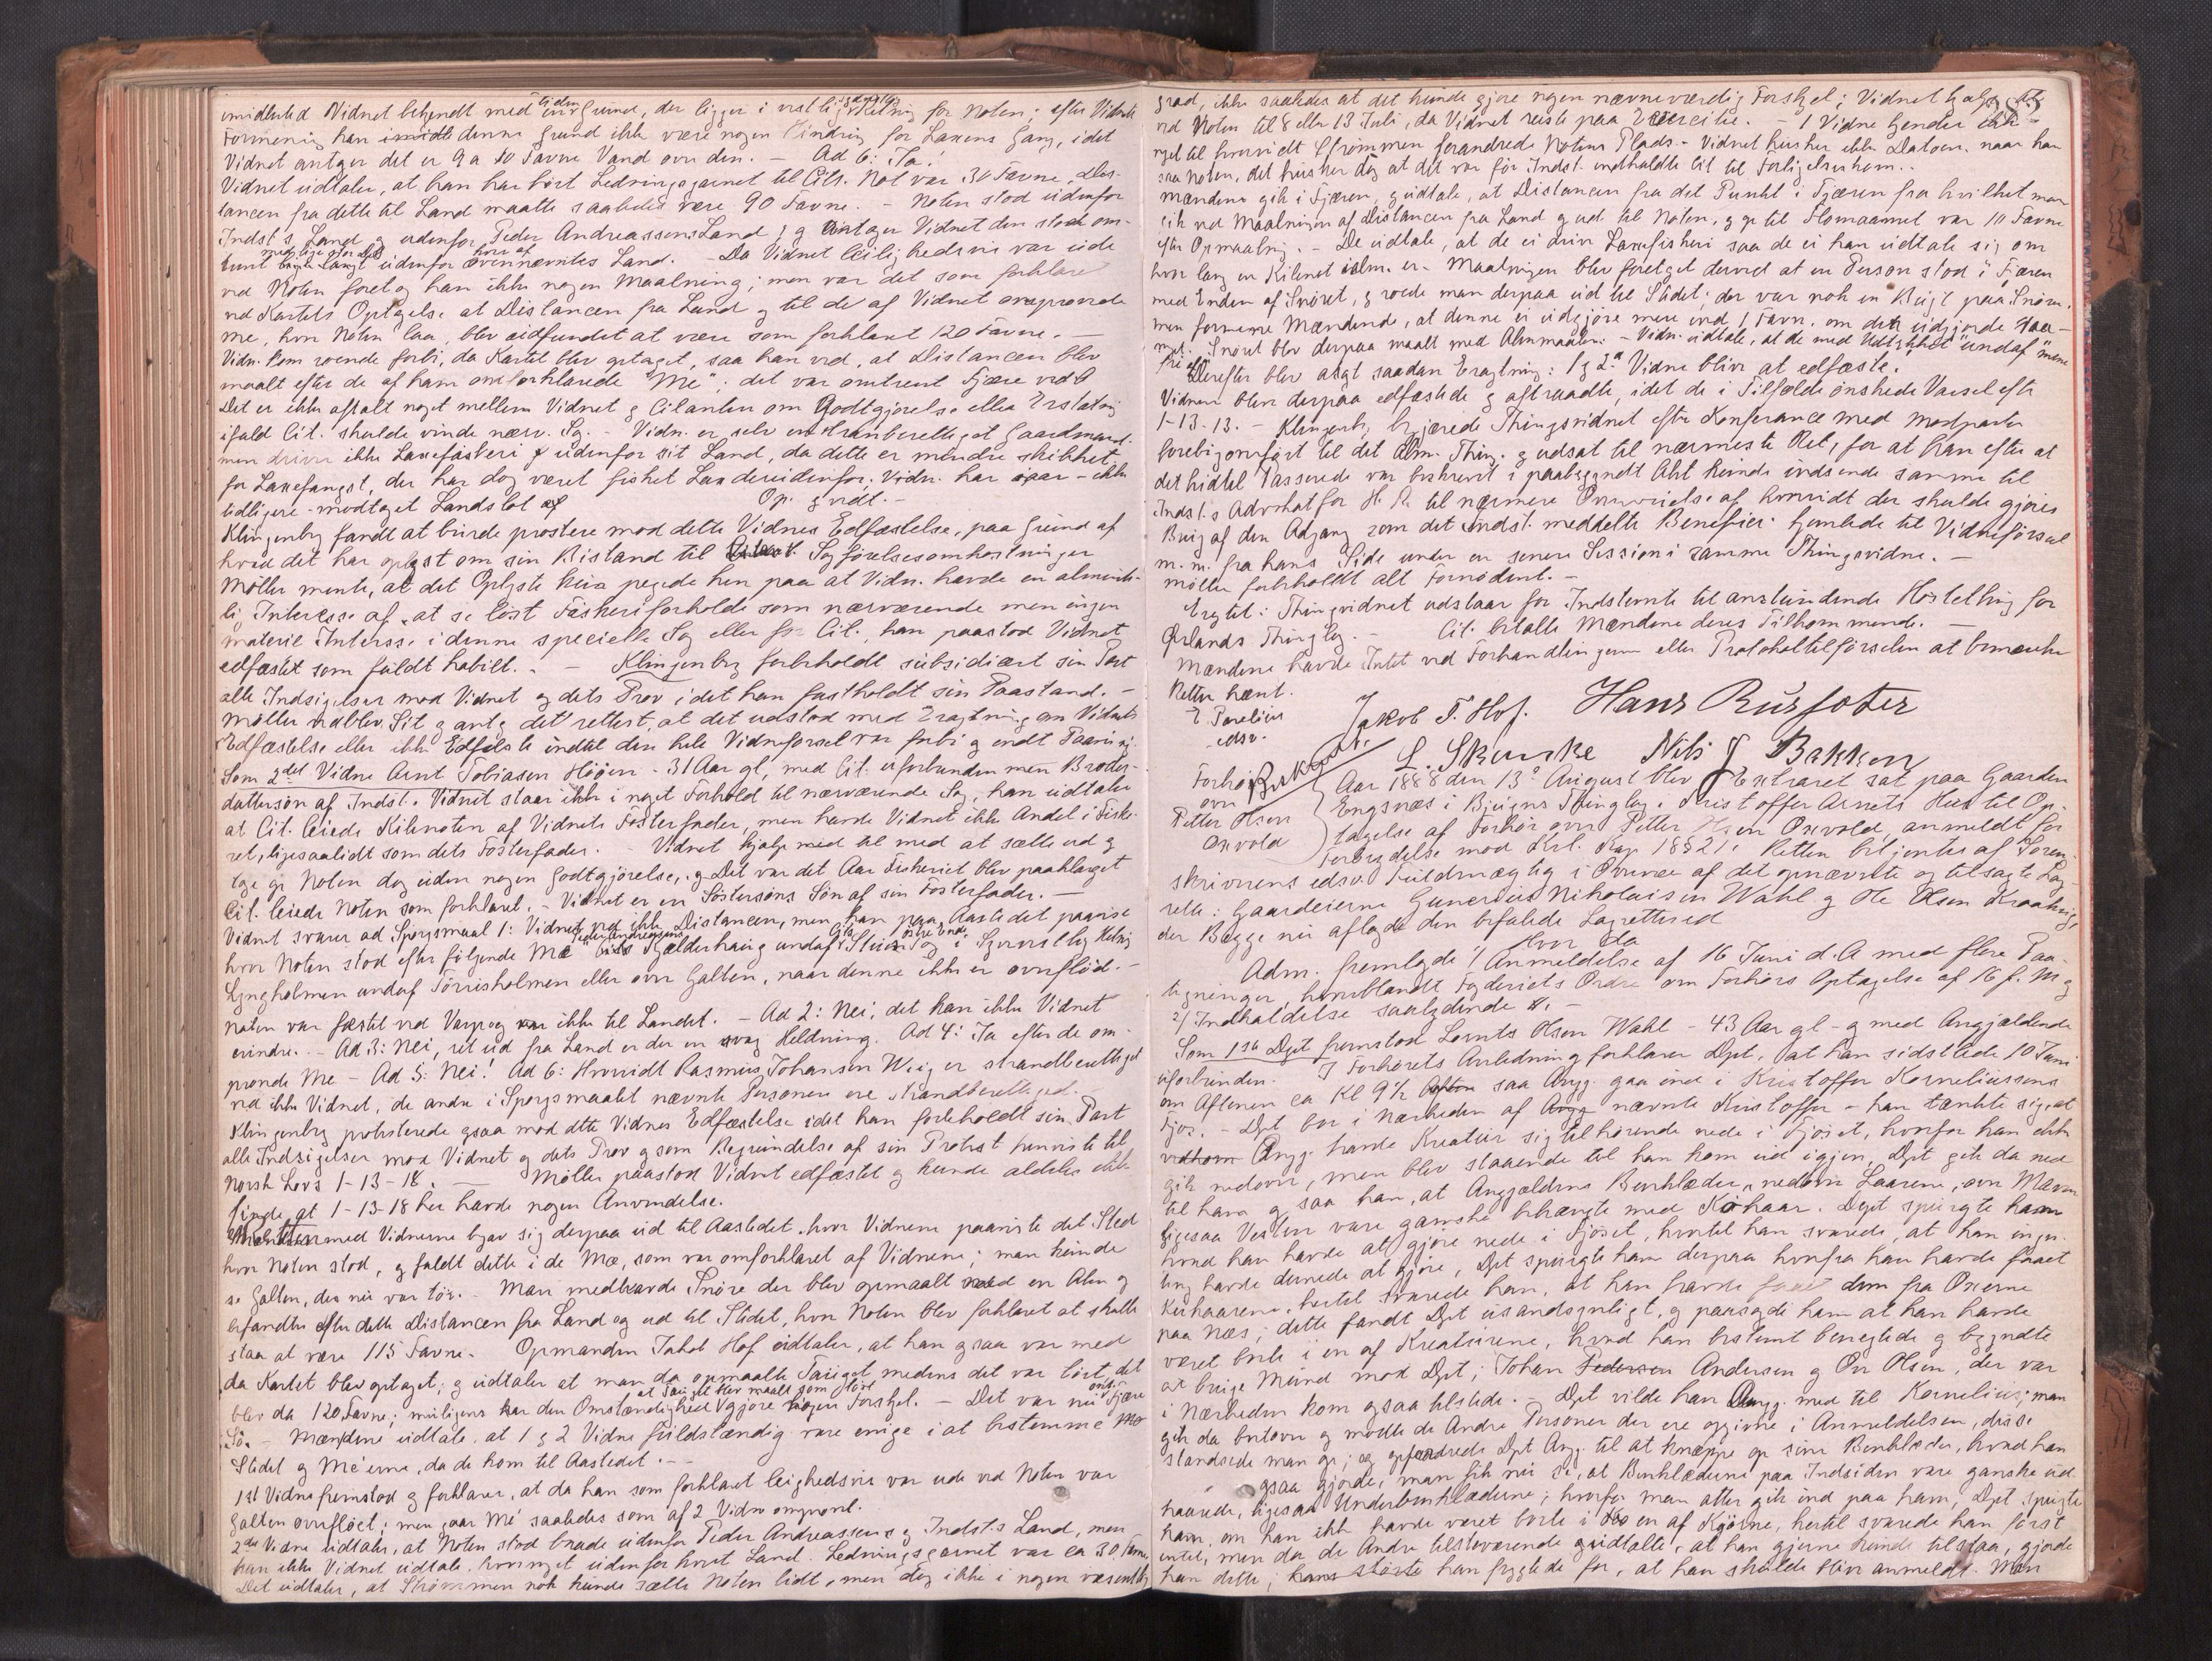 imidlertid Vidnet bekjendt med en Grund, der ligger i vestlig Retning for Noten; efter Vidnets
Formening kan denne Grund ikke være nogen Hindring for Laxens Gang, idet
Vidnet antager det er 9 a 10 Favne Vand over den. – Ad 6: Ja.
Vidnet udtaler, at han har hørt Ledningsgarnet til Cits. Not var 30 Favne, Dis-
tancen fra dette til Land maatte saaledes være 90 Favne. – Noten stod udenfor
Indst's Land og udenfor Peder Andreassens Land og antager Vidnet den stod om-
trent lige langt udenfor ovennævntes Land. – Da Vidnet leilighedsvis var ude
ved Noten foretog han ikke nogen Maalning; men var det som forklaret
ved Kartets Optagelse at Distancen fra Land og til de af Vidnet omprovede
Me, hvor Noten laa, blev udfundet at være som forklaret 120 Favne. –
Vidn. kom roende forbi, da Kartet blev optaget, saa han ved, at Distancen blev
maalt efter de af ham omforklarede "Me"; det var omtrent Fjære ved
Det er ikke aftalt noget mellem Vidnet og Citanten om Godtgjørelse eller Erstatning
ifald Cit. skulde vinde nærv. Sag. – Vidn. er selv en strandberettiget Gaardmand
men driver ikke Laxefiskeri udenfor sit Land, da dette er mindre skikket
for Laxefangst, der har dog været fisket Lax derudenfor; Vidn. har iaar – ikke
tidligere – modtaget Landslot af Op. g vedt. –
Klingenberg fandt at burde protestere mod dette Vidnes Edfæstelse, paa Grund af
hvad det har oplyst om sin Bistand til Sagførelsesomkostninger
Møller mente, at det Oplyste kun pegede hen paa at Vidn. havde en alminde-
lig Interesse af at se løst Fiskeriforholde som nærværende men ingen
materiel Interesse i denne specielle Sag eller for Cit., han paastod Vidnet
edfæstet som fuldt habilt. – – Klingenberg forbeholdt subsidiært sin Part
alle Indsigelser mod Vidnet og dets Prov idet han fastholdt sin Paastand. –
Møller vedblev Sit og antog det rettest, at det udstod med Eragtning om Vidnets
Edfæstelse eller ikke Edfæstelse indtil den hele Vidneførsel var forbi og endt Paavisning.
Som 2det Vidne Arnt Tobiasen Höien – 31 Aar gl, med Cit. uforbunden men Broder-
dattersøn af Indst. Vidnet staar ikke i noget Forhold til nærværende Sag, han udtaler
at Cit. leiede Kilenoten af Vidnets Fosterfader, men havde Vidnet ikke Andel i Fiske-
ret, ligesaalidt som dets Fosterfader. – Vidnet hjalp med til med at sætte ud og
tage op Noten dog uden nogen Godtgjørelse, og Det var det Aar Fiskeriet blev paaklaget
Cit. leiede Noten som forklaret. – Vidnet er en Søstersøns Søn af sin Fosterfader. –
Vidnet svarer ad Spørgsmaal 1: Vidnet ved ikke Distancen, men kan paa Aastedet paavise
hvor Noten stod efter følgende Me Kjælderhaug undaf
Lyngholmen undaf Tørrisholmen eller over Galten, naar denne ikke er overflød. –
Noten var fæstet ved Varp og ikke til Landet. – Ad 2: Nei; det kan ikke Vidnet
erindre. – Ad 3: Nei, ret ud fra Land er der en svag Heldning. Ad 4: Ja efter de om-
provede Me – Ad 5: Nei! Ad 6: Hvorvidt Rasmus Johansen Wiig er strandberettiget
ved ikke Vidnet, de andre i Spørgsmaalet nævnte Personer ere strandberettiged. –
Klingenberg protesterede ogsaa mod dette Vidnes Edfæstelse idet han forbeholdt sin Part
alle Indsigelser mod Vidnet og dets Prov og som Begrundelse af sin Protest henviste til
Norsk Lovs 1-13-18. – Møller paastod Vidnet edfæstet og kunde aldeles ikke
finde at 1-13-18 her havde nogen Anvendelse.
med Vidnerne begav sig derpaa ud til Aastedet, hvor Vidnerne paaviste det Sted
hvor Noten stod, og faldt dette i de Me, som var omforklaret af Vidnerne; man kunde
se Galten, der nu var tør. – Man medhavde Snøre der blev opmaalt med en Alen og
befandtes efter dette Distancen fra Land og ud til Stedet, hvor Noten blev forklaret at skulle
staa at være 115 Favne. – Opmanden Jakob Hof udtaler, at han ogsaa var med
da Kartet blev optaget; og udtaler at man da opmaalte Tauget medens det var tørt, det
blev da 120 Favne; muligens kan den Omstændighed at Tauget blev maalt som tørt gjøre nogen Forskjel. – Det var nu Fjære
Sø. – Mændene udtale at 1 og 2 Vidne fuldstændig vare enige i at bestemme
Stedet og Me'erne, da de kom til Aastedet. –
1st Vidne fremstod og forklarer, at da han som forklaret leilighedsvis var ude ved Noten var
Galten overflöet; men var Me' saaledes som af 2 Vidne omprovet.
2det Vidne udtaler, at Noten stod baade udenfor Peder Andreassens og Indst.s Land, men
kan ikke Vidnet udtale hvormeget udenfor hvert Land. Ledningsgarnet var ca 30 Favne
Det udtaler, at Strømmen nok kunde sætte Noten lidt, men dog ikke i nogen væsentlig
grad, ikke saaledes at det kunde gjøre nogen nævneværdig Forskjel; Vidnet hjalp
ved Noten til 8 eller 13 Juli, da Vidnet reiste paa Exercitie. – 1 Vidne kjender ikke
noget til hvorvidt Strømmen forandrede Notens Plads. – Vidnet husker ikke Datoen naar han
saa Noten, det husker dog at det var før Indst. indkaldte Cit til Forligelseskom. –
Mændene gik i Fjæren, og udtale, at Distancen fra det Punkt i Fjæren fra hvilket man
gik ved Maalningen af Distancen fra Land og ud til Noten, og op til Flomaamet var 10 Favne
efter Opmaaling. – De udtale, at de ei driv Laxefiskeri saa de ei kan udtale sig om
hvor lang en Kilenot alm. er – Maalningen blev foretaget derved at en Person stod i Fjæren
med Enden af Snøret, og roede man derpaa ud til Stedet; der var nok en Bugt paa Snøret
men formene Mændene, at denne ei udgjøre mere end 1 Favn, om det udgjorde saa-
meget. Snøret blev derpaa maalt med Alenmaalet. – Vidn. udtale, at de med Udtrykket "undaf" mene
fri af
Derefter blev afsagt saadan Eragtning: 1 og 2det Vidne bliver at edfæste.
Vidnerne blev derpaa edfæstede og aftraadte, idet de i Tilfælde ønskede Varsel efter
1-13-13. – Klingenb. begjærede Thingsvidnet efter Konferance med Modparten
forbigaaende til det Alm. Thing. og udsat til nærmeste Ret, for at han efter at
det hidtil Passerede var beskrevet i paabegyndt Akt kunde indsende samme til
Indst.s Advokat for H. R. til nærmere Overveielse af hvorvidt der skulde gjøres
Brug af den Adgang som det Indst. meddelte Beneficium hjemlede til Vidneførsel
m. m. fra hans Side under en senere Session i samme Thingsvidne. –
Møller forbeholdt alt Fornødent. –
Eragtet: Thingsvidnet udstaar for Indstevnte til anstundende Høstthing for
Ørlands Thinglag. – Cit. betalte Mændene deres Tilkommende. –
Mændene havde Intet ved Forhandlingerne eller Protokoltilførselen at bemærke
Retten hævet.
E. Parelius
edsv.
Jakob T. Hof. Hans Rusfoter
L. Skurske Nils J Bakken
Forhør
over
Petter Olsen
Oxvold
Aar 1888 den 13 August blev Extraret sat paa Gaarden
Engsnæs i Bjugns Thinglag i Kristoffer Arnets Hus til Op-
tagelse af Forhør over Petter Olsen Oxvold, anmeldt for
Forbrydelse mod Krl. Kap 18 § 21. Retten betjentes af Soren-
skriverens edsv. Fuldmægtig i Overvær af det opnævnte og tilsagte Lag-
rette: Gaardeierne Gunerius Nikolaisen Wahl og Ole Olsen Kraakvig,
der Begge nu aflagde den befalede Lagretteed
Hvor da
Adm. fremlagde 1/ Anmeldelse af 16 Juni d.A med flere Paa-
tegninger, hvoriblandt Fogderiets Ordre om Forhørs Optagelse af 16 f. M. og
2/ Indkaldelse saalydende. –
Som 1ste Dpt fremstod Lornts Olsen Wahl – 43 Aar gl – og med Angjældende
uforbunden. I Forhørets Anledning forklarer Dpt, at han sidstlede 10 Juni
om Aftenen ca Kl 9½ saa Angj. gaa ind i Kristoffer Korneliussens
Fjøs. – Dpt bor i Nærheden af nævnte Kristoffer – han tænkte sig, at
Angj. havde Kreatur sig tilhørende nede i Fjøset, hvorfor han ikke
gik nedover, men blev staaende til han kom ud igjen, Dpt gik da ned
til ham og saa han, at Angjældens Benklæder, nedover Laarene, over Maven
ligesaa Vesten vare ganske behængte med Kohaar. Dpt spurgte ham
hvad han havde at gjøre nede i Fjøset, hvortil han svarede, at han ingen-
ting havde dernede at gjøre, Dpt spurgte ham derpaa hvorfra han havde faaet
Kuhaarene, hertil svarede han, at han havde faaet dem fra Oxerne
paa Næs; dette fandt Dpt usandsynligt, og paasagde ham at han havde
været borti i en af Kreaturene, hvad han bestemt benegtede og begyndte
at bruge Mund mod Dpt; Johan Andersen og Ole Olsen, der var
i Nærheden kom ogsaa tilstede. – Dpt vilde han Angj. med til Kornelius; man
gik da bortover og mødte de Andre Personer der ere opgivne i Anmeldelsen, disse
standsede man op; og opfordrede Dpt Ang. til at knæppe op sine Benklæder, hvad han
ogsaa gjorde, man fik nu se, at Benklæderne paa Indsiden vare ganske ud-
haarede, ligesaa Underbenklæderne; hvorfor man atter gik ind paa ham, Dpt spurgte
ham, om han ikke havde været borte i en af Kjørne, hertil svarede han først
intet, men da de Andre tilstedeværende udtalte, at han gjerne kunde tilstaa, gjorde
han dette; største han frygtede for, at han skulde blive anmeldt. Man